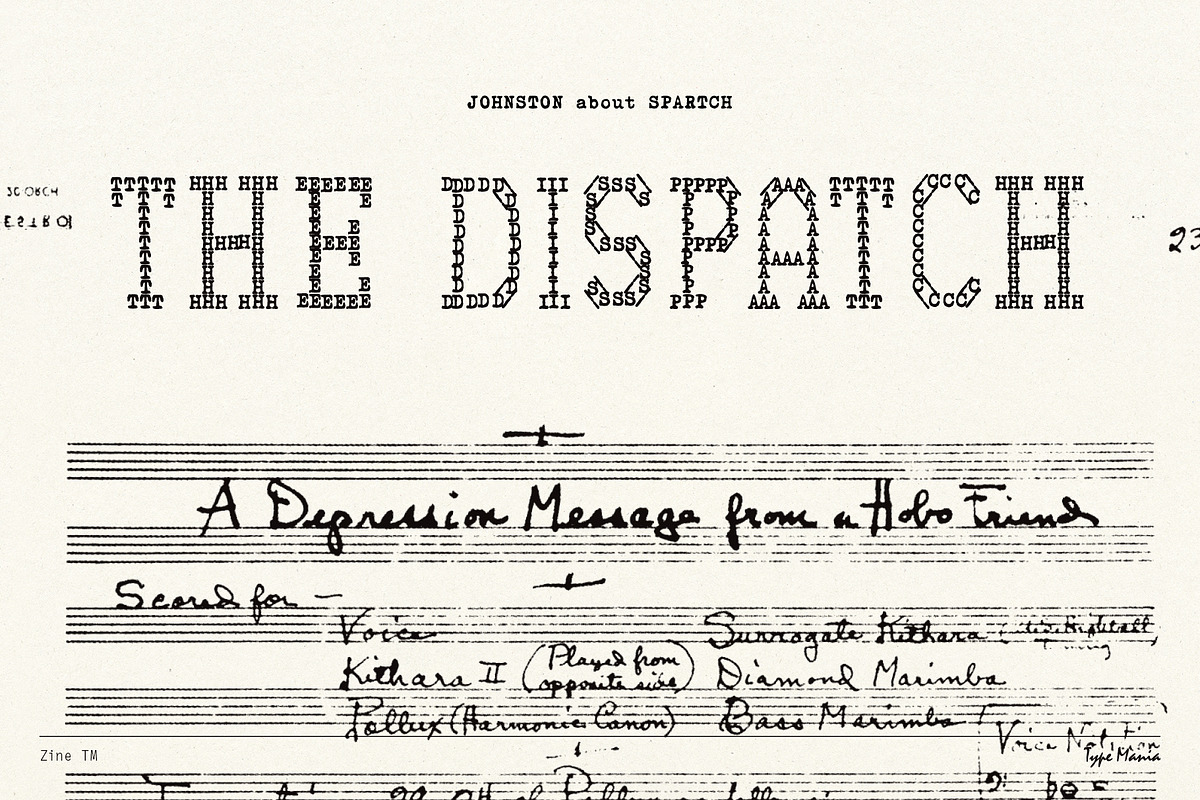 JOHNSTON about SPARTCH
THE DISPATCH
23
A Depression Message from a Hobo Friend
Scored for —
Voice
Kithara II (Played from opposite side)
Pollux (Harmonic Canon)
Surrogate Kithara
Diamond Marimba
Bass Marimba
Voice Notation
Zine TM
Type Mania